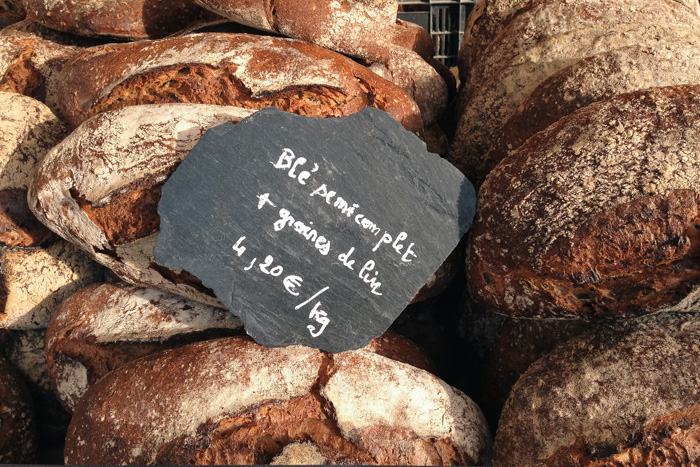 Blé semi complet
+ graines de lin
4,20€/kg